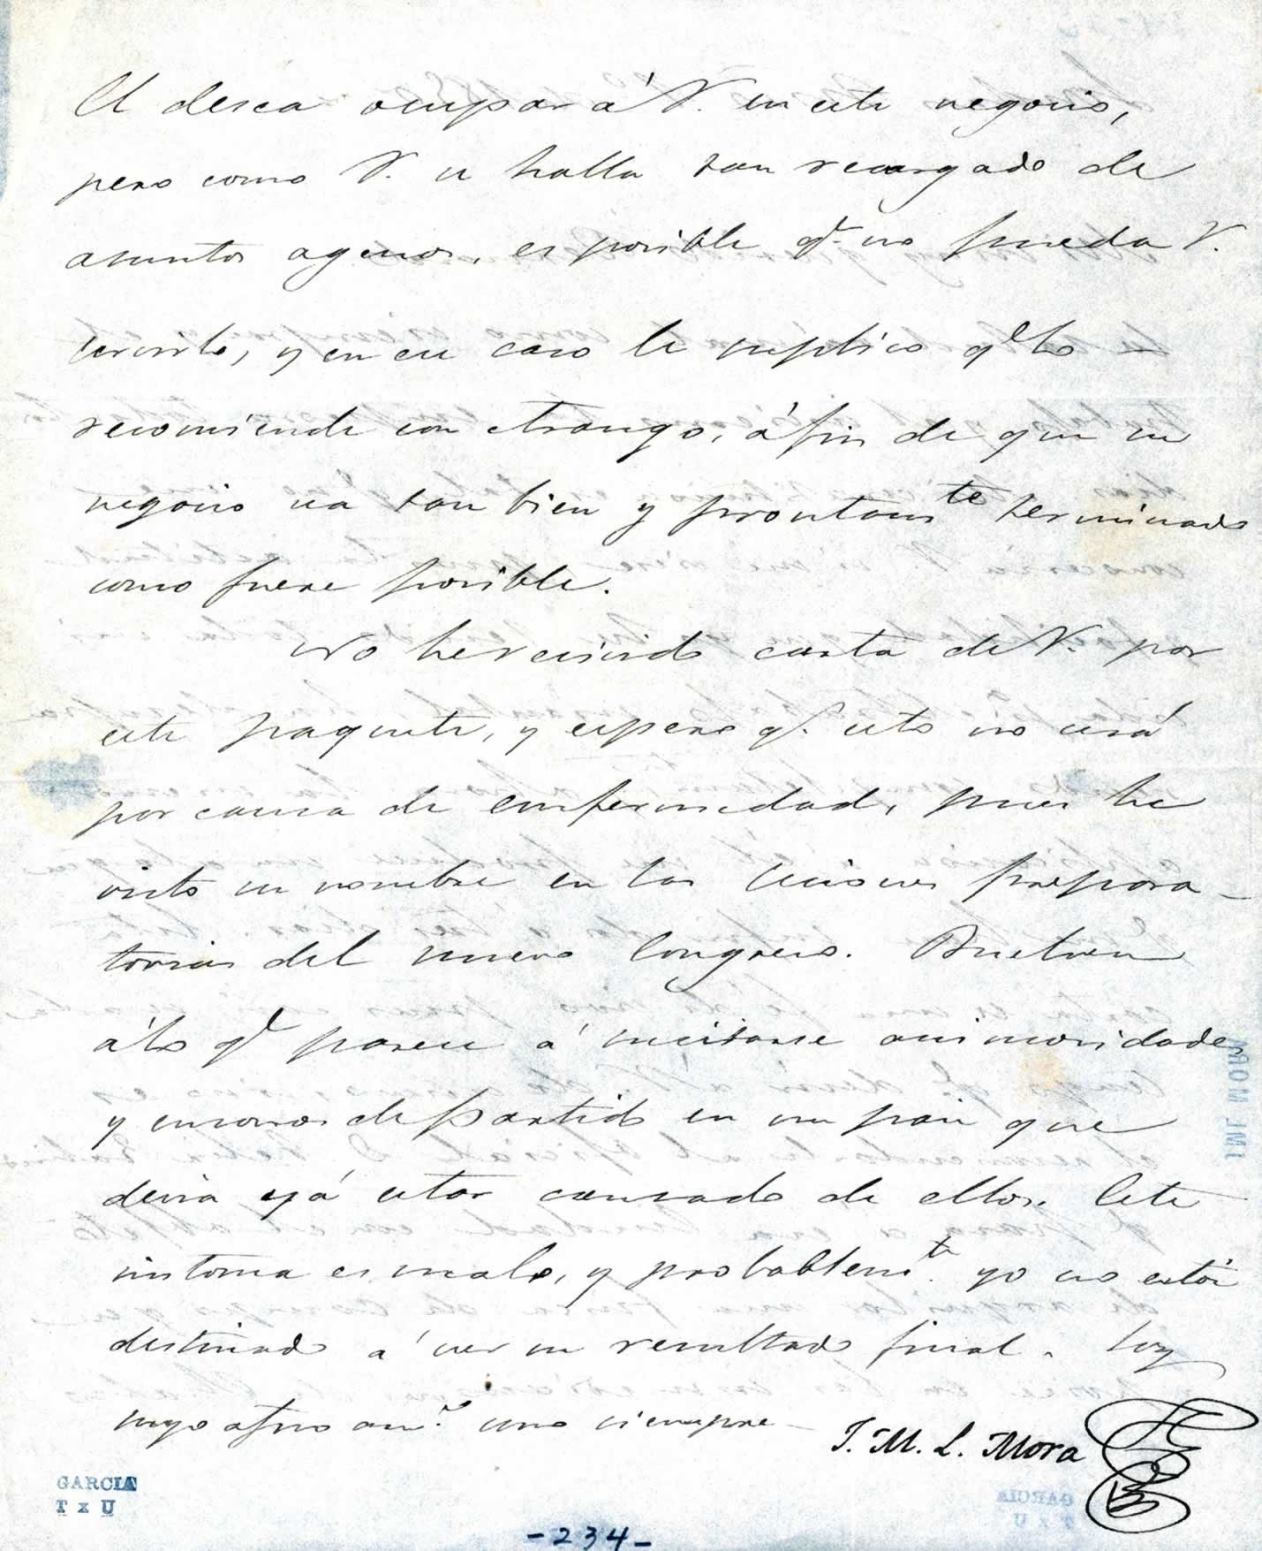 El desea ocupar á V. en este negocio,
pero como V. se halla tan recargado de
asuntos agenos, es posible q.e no pueda V.
servirlo, y en ese caso le suplico q.e lo
recomiende con otro amigo, á fin de que su
negocio sea tan bien y prontam.te terminado
como fuere posible.
No he recivido carta de V. por
este paquete, y espero q.e esto no será
por causa de enfermedad, pues he
visto su nombre en las sesiones prepara-
torias del nuevo Congreso. Vuelven
á lo q.e parece á suscitarse animosidades
y enconos de partido en un pais que
devia yá estar cansado de ellos. Este
sintoma es malo, y probablem.te yo no estoi
destinado á ver su resultado final. Soy
suyo afmo am.o como siempre
J. M. L. Mora
GARCIA
T x U
-234-